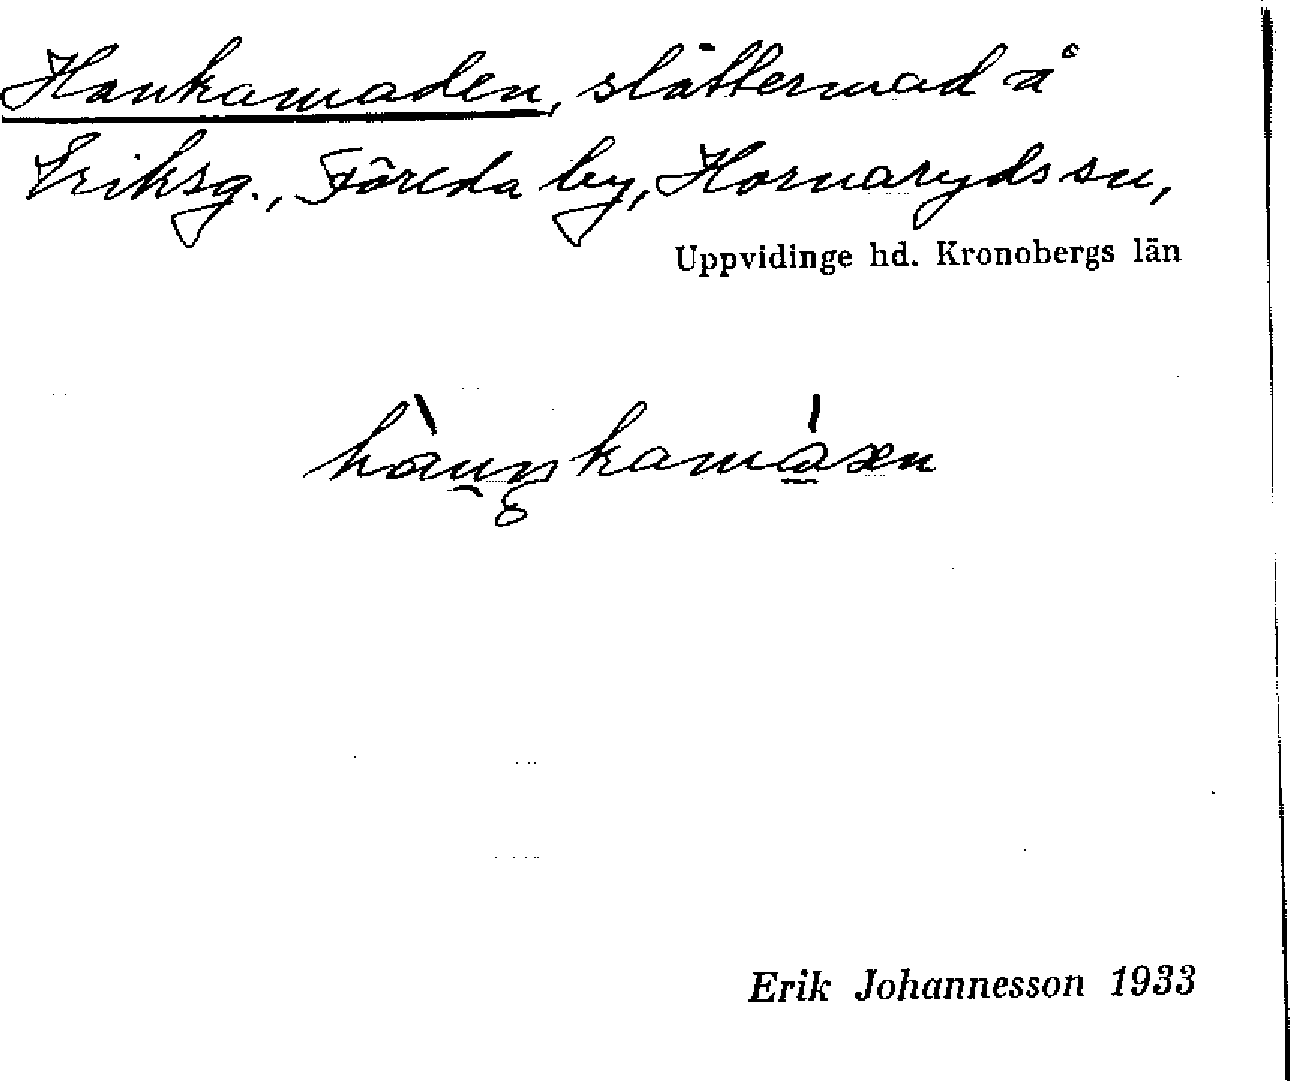 Hankamaden, slåttermad å
Eriksg., Föreda by, Hornaryds sn,
Uppvidinge hd. Kronobergs län
Erik Johannesson 1933